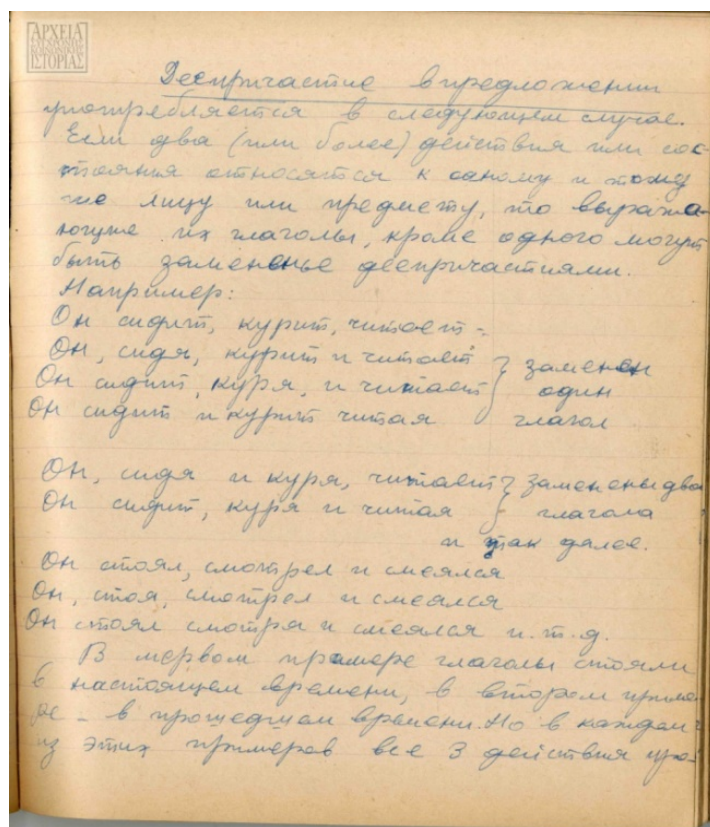 ΑΡΧΕΙΑ
ΙΣΤΟΡΙΑΣ
Деепричастие в предложении
употребляется в следующем случае.
Если два (или более) действия или сос-
тояния относятся к одному и тому
же лицу или предмету, то выража-
ющие их глаголы, кроме одного могут
быть замененые деепричастиями.
Например:
Он сидит, курит, читает -
Он, сидя, курит и читает } заменен
Он сидит, куря, и читает } один
Он сидит и курит читая глагол
Он, сидя и куря, читает } заменены два
Он сидит, куря и читая } глагола
и так далее.
Он стоял, смотрел и смеялся
Он, стоя, смотрел и смеялся
Он стоял смотря и смеялся и.т.д.
В первом примере глаголы стояли
в настоящем времени, в втором приме-
ре - в прошедшем времени. Но в каждом
из этих примеров все 3 действия про-